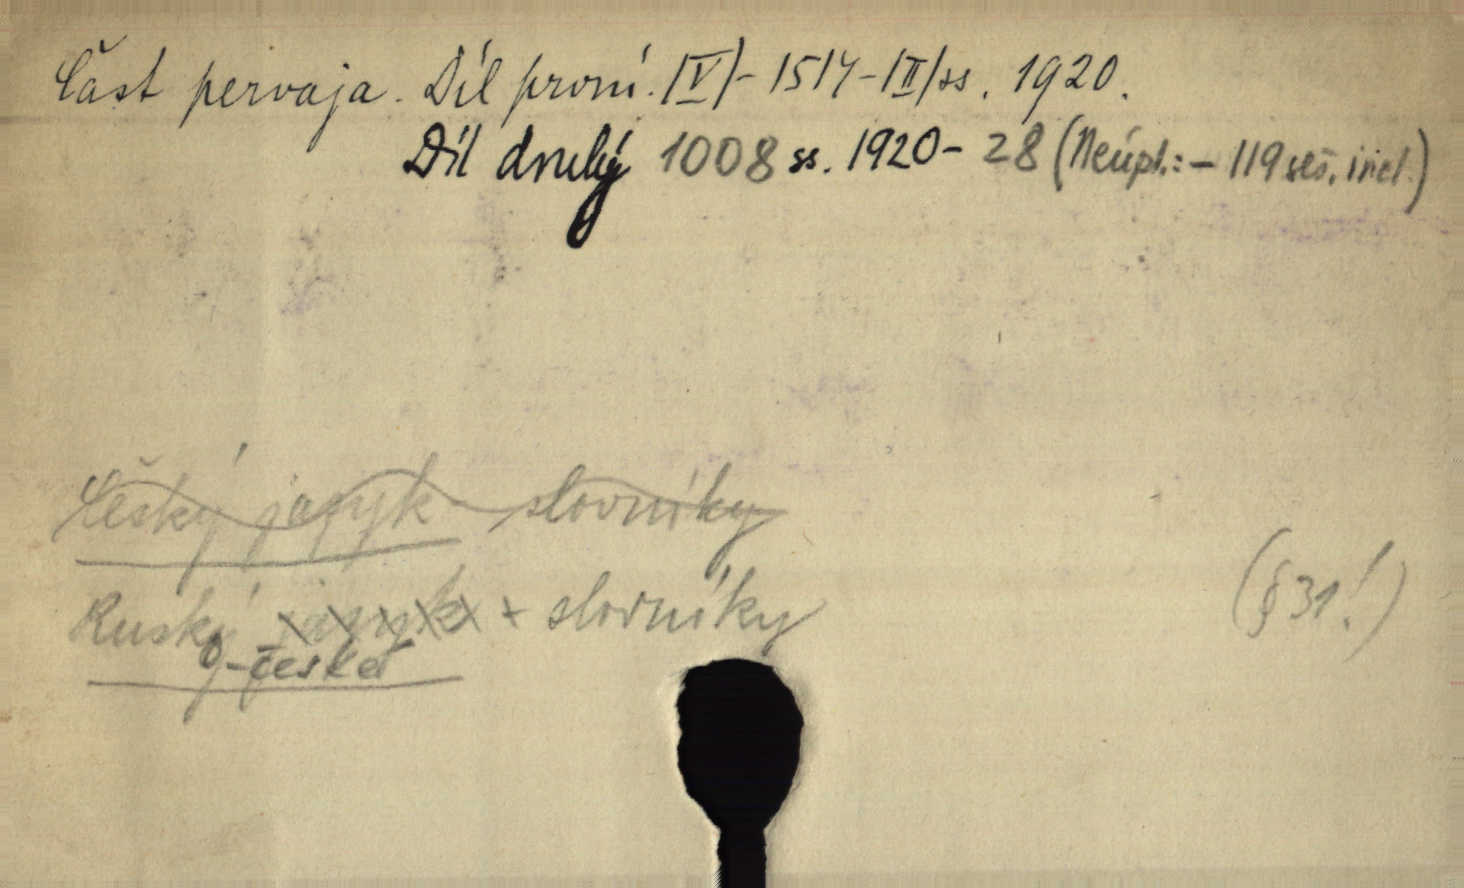 Část pervaja. Díl první. |V|- 1514-|II| ss. 1920.
Díl druhý 1008 ss. 1920-28 (Neúpl.: - 119 seš. incl.)
Český jazyk slovníky
Ruský jazyk + slovníky
(§ 31!)
o-české